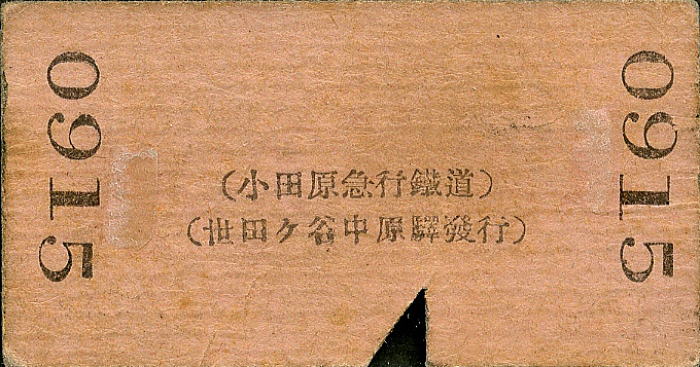 0915
(小田原急行鐵道)
(世田ケ谷中原驛發行)
0915